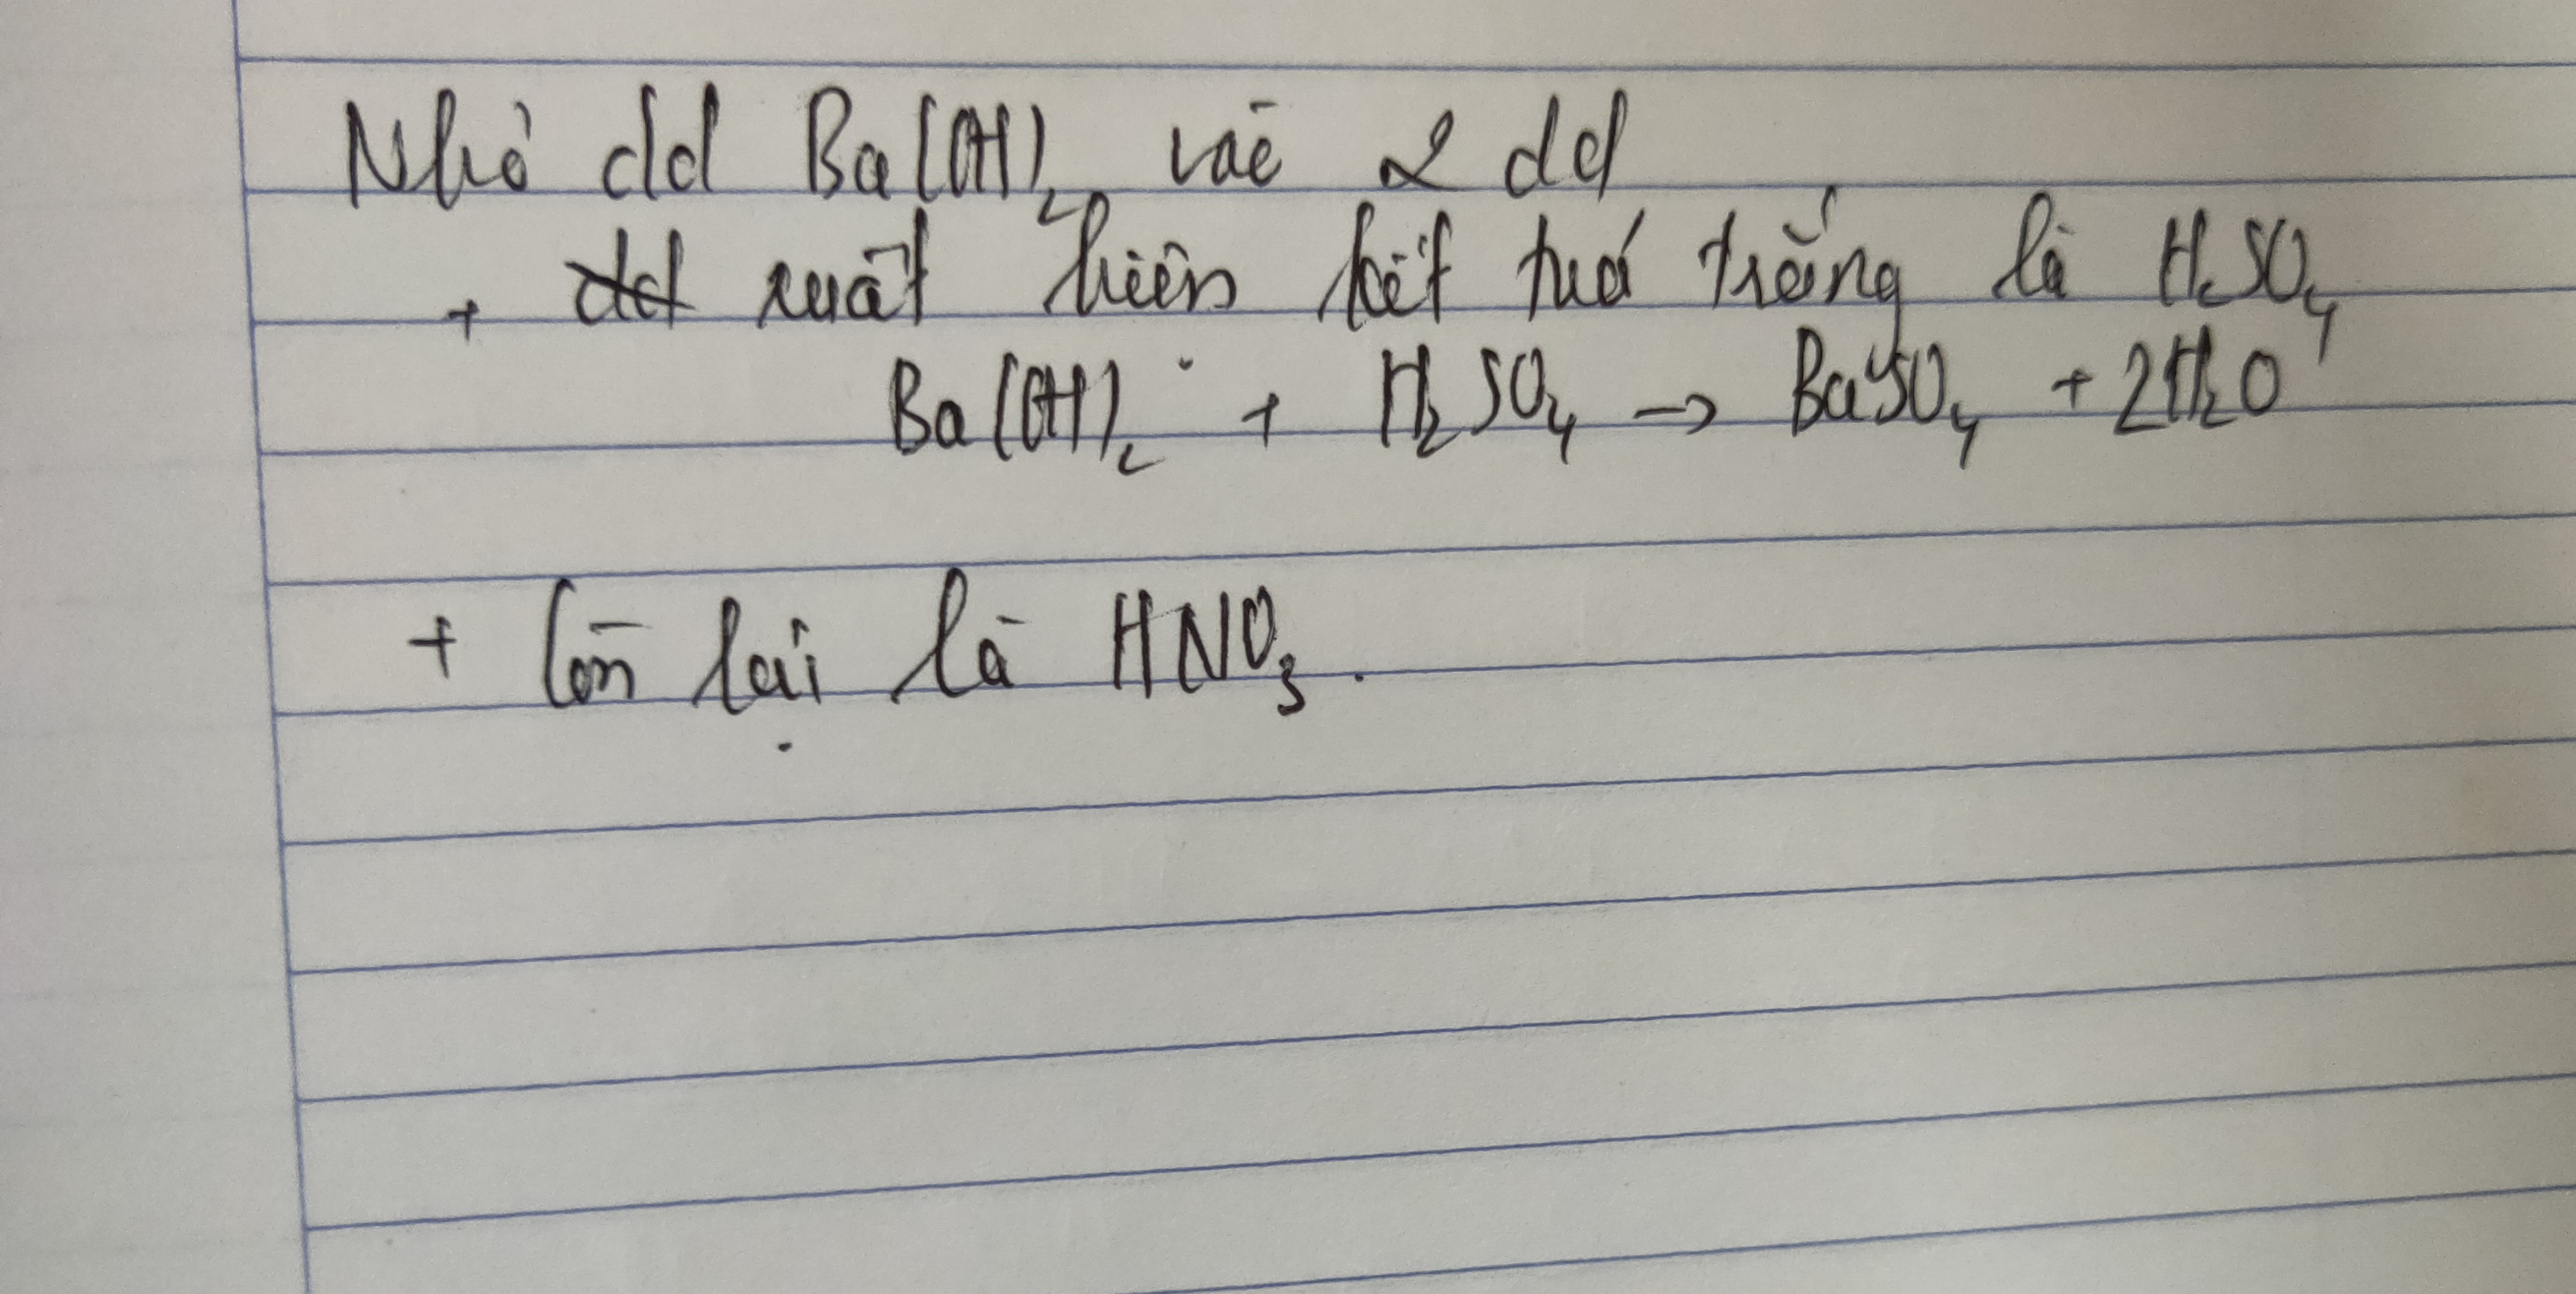 Nhỏ dd Ba(OH)₂ vào 2 dd
+ dd xuất hiện kết tuả trắng là H₂SO₄
Ba(OH)₂ + H₂SO₄ → BaSO₄ + 2H₂O
+ Còn lại là HNO₃.